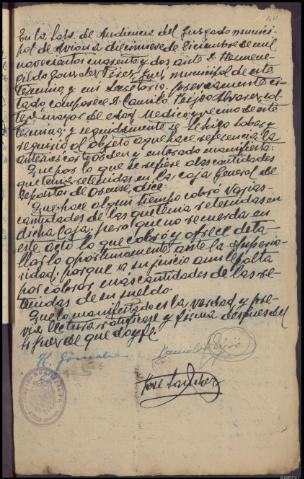 En la Sala de Audiencia del Juzgado munici-
pal de Avion a diecinueve de Diciembre de mil
novecientos cuarenta y dos ante D. Hermene-
gildo González Pérez, Juez municipal de este
término y mi Secretario. previamente ci-
tado comparece D. Camilo Feijoo Alvarez, sol-
tero mayor de edad Medico y vecino de este
término; y
seguido el objeto a que hace referencia la
anterior carta orden y enterado manifiesta:
Que por lo que se refiere a las cantidades
que tenia retenidas en la caja General de
Depositos de Orense, dice:
Que hace algun tiempo cobró varias
cantidades de las que tenia retenidas en
dicha caja; pero que no recuerda en
este acto lo que cobró y ofrece deta-
llarlo oportunamente ante la Superio-
ridad, porque a su juicio aun le falta
por cobrar mas cantidades de las re-
tenidas de su sueldo.
Que lo manifestado es la verdad y pre-
via lectura ratificase y firma despues del
Sr Juez de que doy fe.
H. González
Camilo Feijoo
José